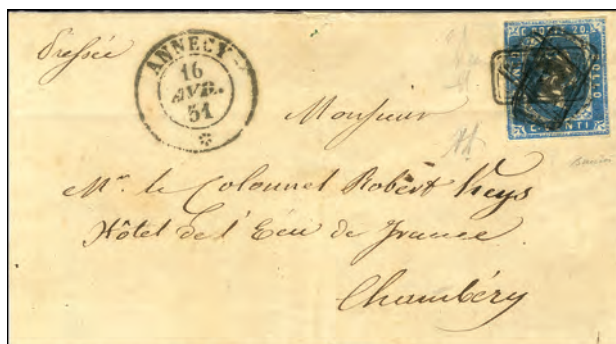 Pressée
ANNECY
16
AVR.
51
C. POSTE 20.
BOLLO
CENTI
Monsieur
Mr. le Colonnel Robert Keys
Hôtel de l'Ecu de France
Chambéry